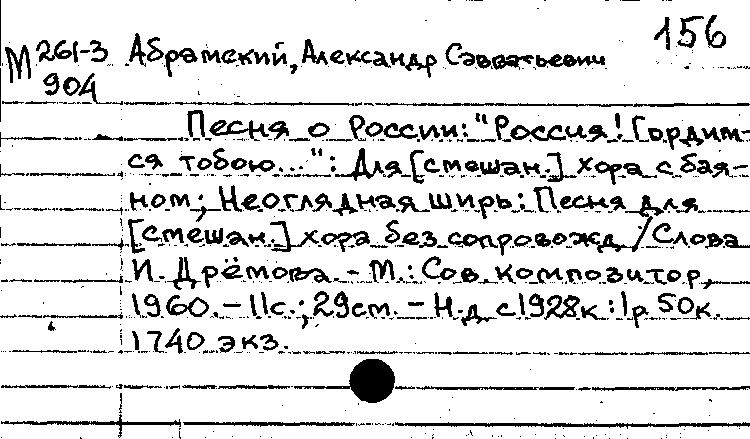 156
М 261-3 Абрамский, Александр Савватьевич
904
Песня о России: "Россия! Гордим-
ся тобою...": Для [смешан.] хора с бая-
ном; Неоглядная ширь: Песня для
[смешан.] хора без сопровожд. / Слова
И. Дрёмова. - М.: Сов. композитор,
1960. - 11с.; 29см. - Н.д. с1928к : 1р 50к.
1740 экз.